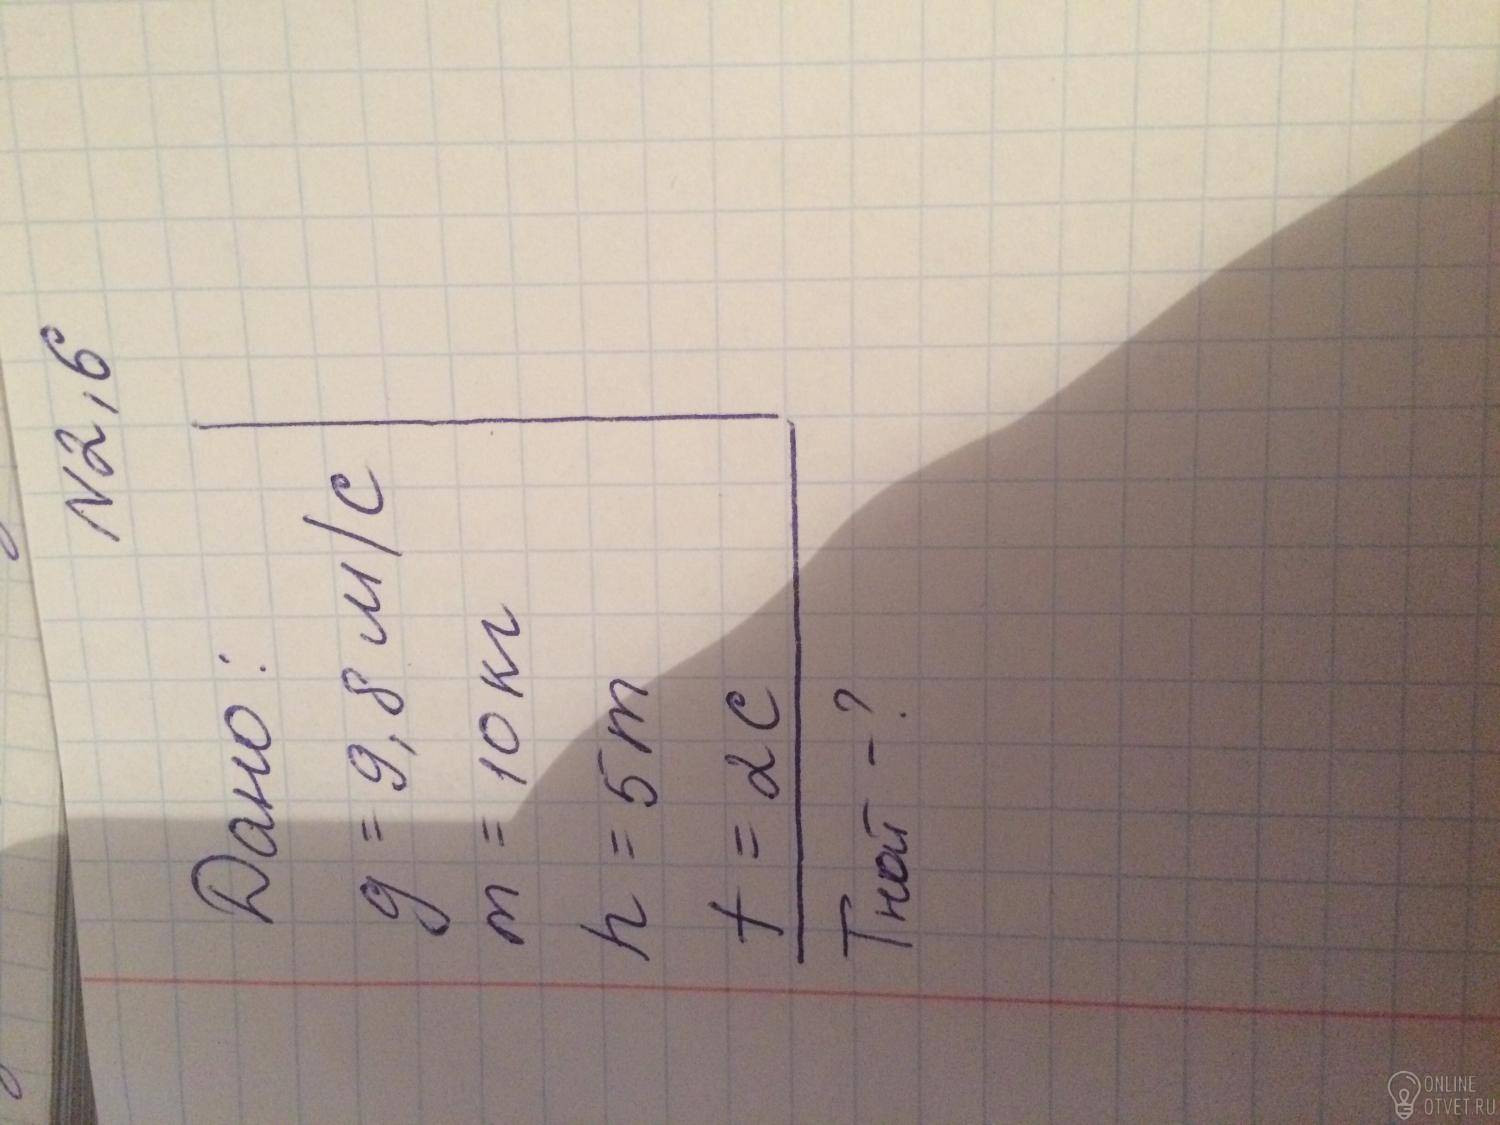 N2,6
Дано:
g = 9,8 м/с
m = 10 кг
h = 5 m
t = 2 с
Tной - ?
ONLINE
OTVET.RU